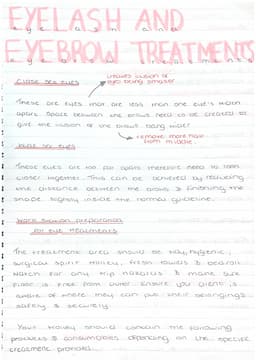 EYELASH AND
EYEBROW TREATMENTS
CLOSE SET EYES
creates illusion of
eyes being smaller
These are eyes that are less than one eye's width
apart. Space between the brows need to be created to
give the illusion of the brows being wider
remove more hair
from middle.
WIDE SET EYES
These eyes are too far apart therefore need to look
closer together. This can be acheived by reducing
the distance between the brows & finishing the
shape slightly inside the normal guideline.
Work station preparation
for eye treatments
The treatment area should be tidy, hygienic,
surgical spirit trolley, fresh towels & bedroll.
Watch for any trip hazards & make sure
floor is free from oils. Ensure you client is
aware of where they can put their belongings
safely & securely.
Your trolley should contain the following
products & consumables depending on the specific
treatment provided...